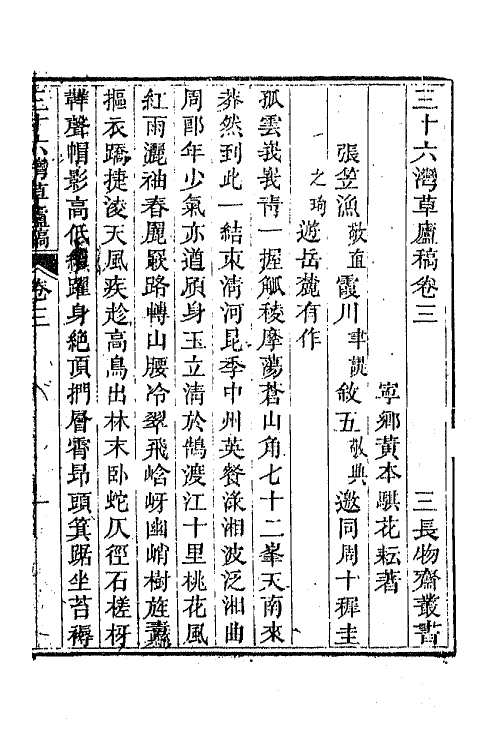 三十六灣草廬稿卷三　三長物齋叢書
寧鄉黃本騏花耘著
張笠漁敬直霞川聿敘五敬典邀同周十穉圭
之琦遊岳麓有作
孤雲峩峩靑一握觚稜摩蕩蒼山角七十二峯天南來
莽然到此一結束淸河昆季中州英餐淥湘波泛湘曲
周郎年少氣亦遒頎身玉立淸於鵠渡江十里桃花風
紅雨灑袖春麗嚴路轉山腰冷翠飛岭岈幽峭樹旌纛
摳衣蹻捷淩天風疾趁高鳥出林末臥蛇仄徑石槎枒
韡聲帽影高低躍身絶頂捫層霄昂頭箕踞坐苔褥
三十六灣草廬稿　卷三　一